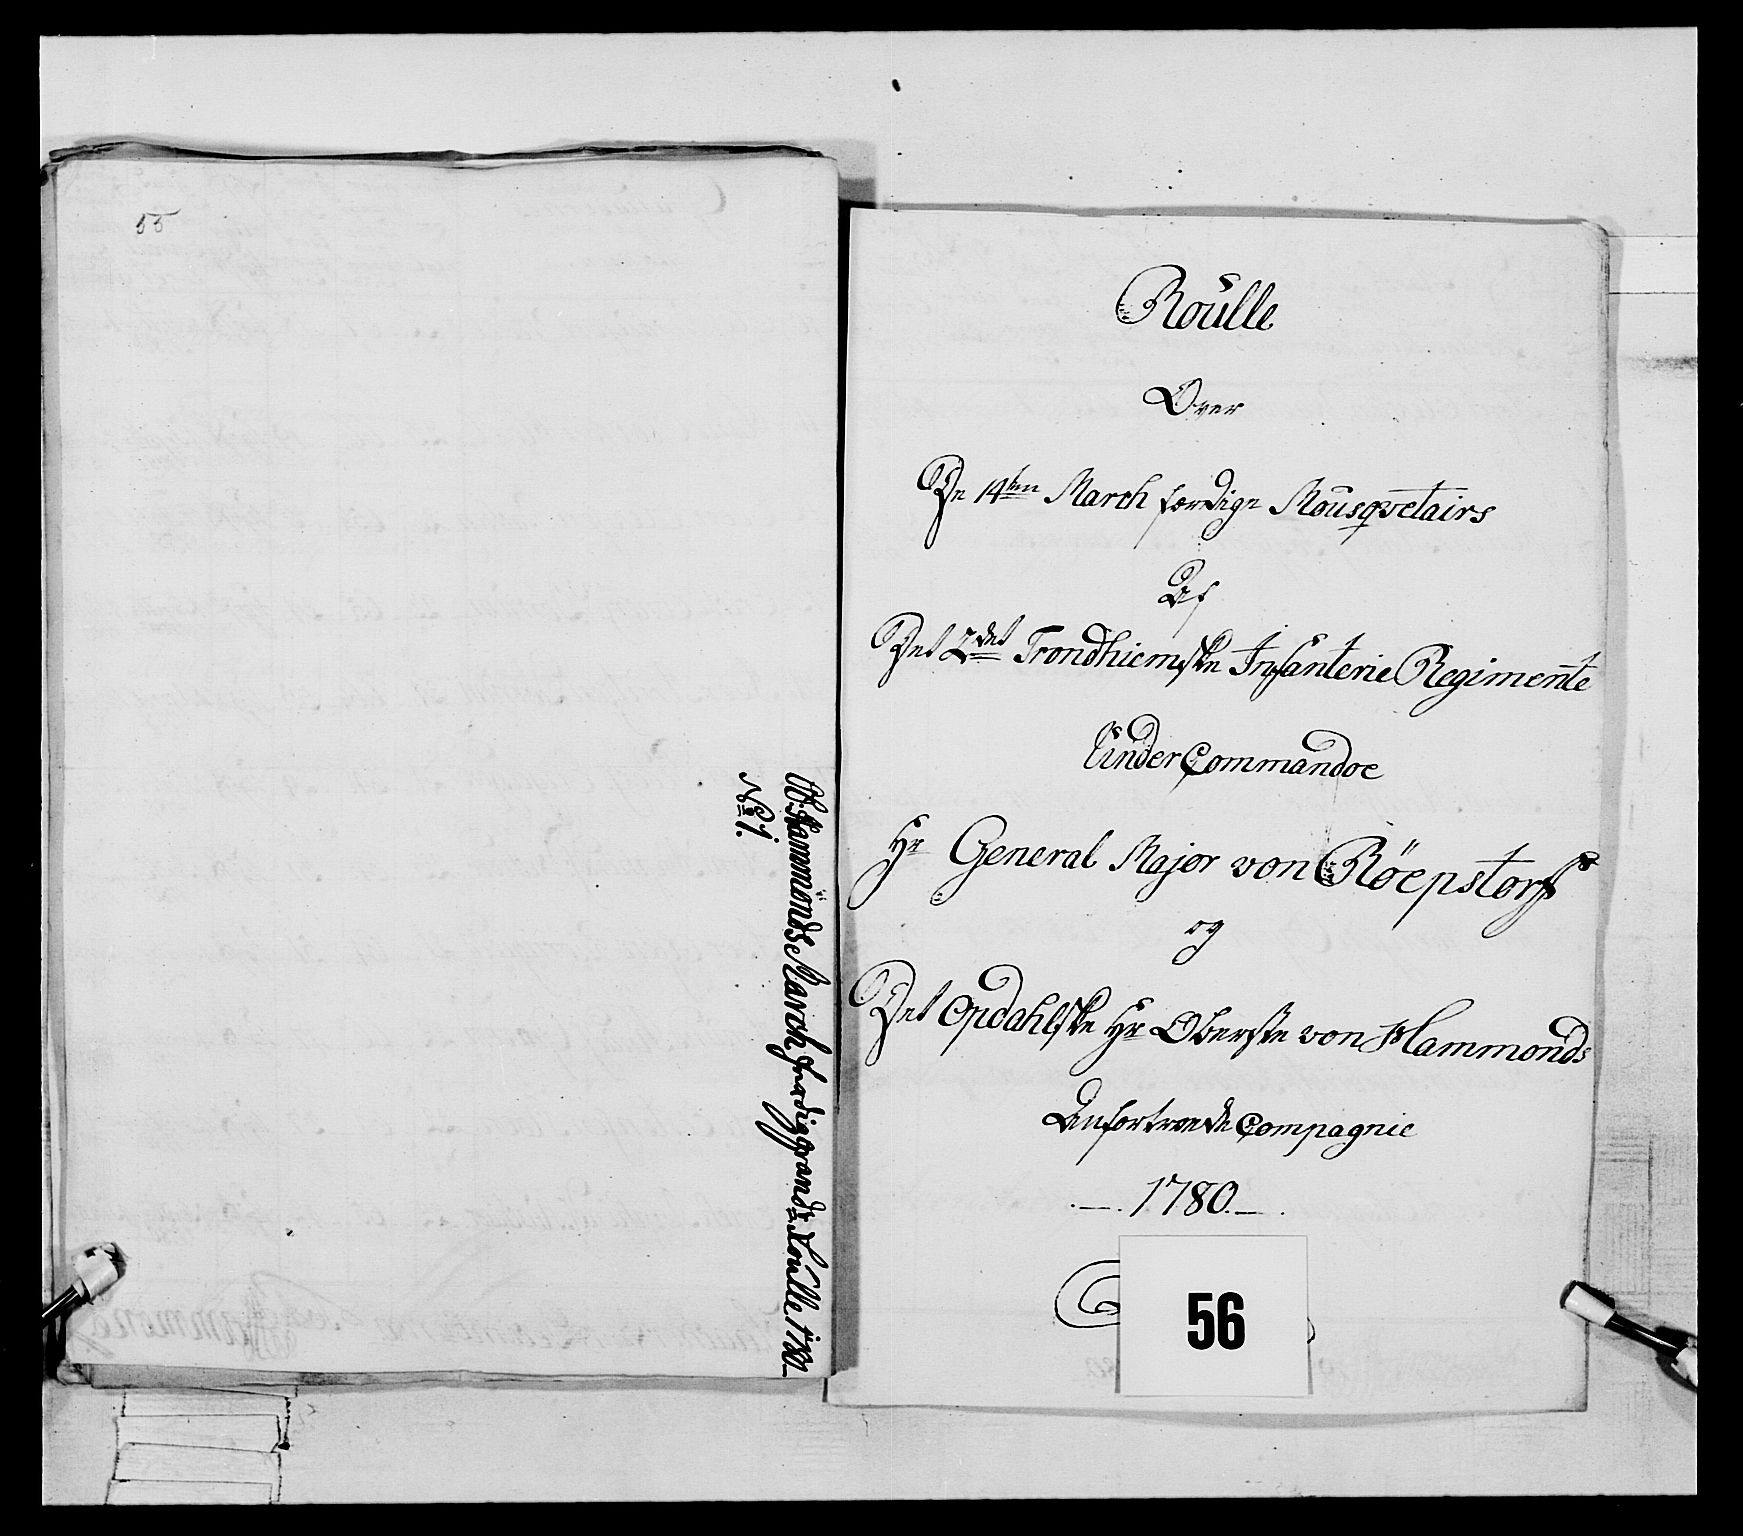 55
Ob: Hammonds March færdiggiorde Roulle 1780.
No 1.
Roulle
Over
De 14ten March færdige Mousqvetairs
Af
Det 2det Trondhiemske Infanterie Regimente
Under Commandoe
Hr General Major von Röepstorff
og
Det Opdahlske Hr Oberste von Hammonds
Anfortroede Compagnie
1780
56